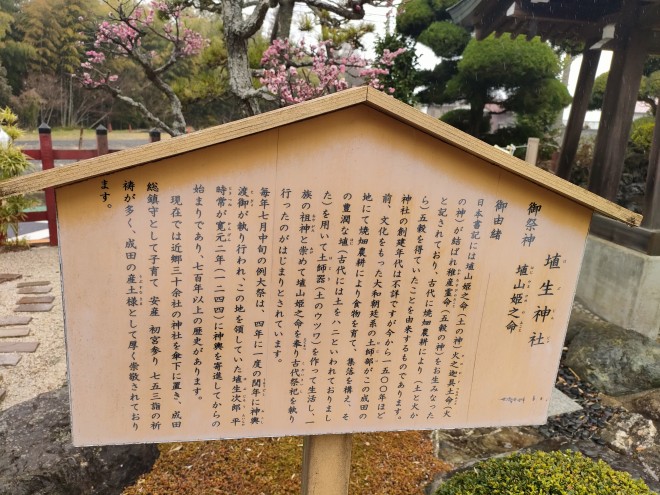 埴生神社
御祭神　埴山姫之命
御由緒
日本書記には埴山姫之命（土の神）火之迦具土命（火
の神）が結ばれ稚産霊命（五穀の神）をお生みなった
と記されており、古代に焼畑農耕により（土と火か
ら）五穀を得ていたことに由来するものであります。
神社の創建年代は不詳ですが今から一五〇〇年ほど
前、文化をもった大和朝廷系の土師部がこの成田の
地にて焼畑農耕により食物を育て、集落を構え、そ
の豊潤な埴（古代には土をハニといわれておりまし
た）を用いて土師器（土のウツワ）を作って生活し、一
族の祖神と崇めて埴山姫之命を奉り古代祭祀を執り
行ったのがはじまりとされています。
毎年七月中旬の例大祭は、四年に一度の閏年に神輿
渡御が執り行われ、この地を領していた埴生次郎平
時常が寛元二年（一二四四）に神輿を寄進してからの
始まりであり、七百年以上の歴史があります。
現在では近郷三十余社の神社を傘下に置き、成田
総鎮守として子育て 安産 初宮参り 七五三詣の祈
祷が多く、成田の産土様として厚く崇敬されており
ます。